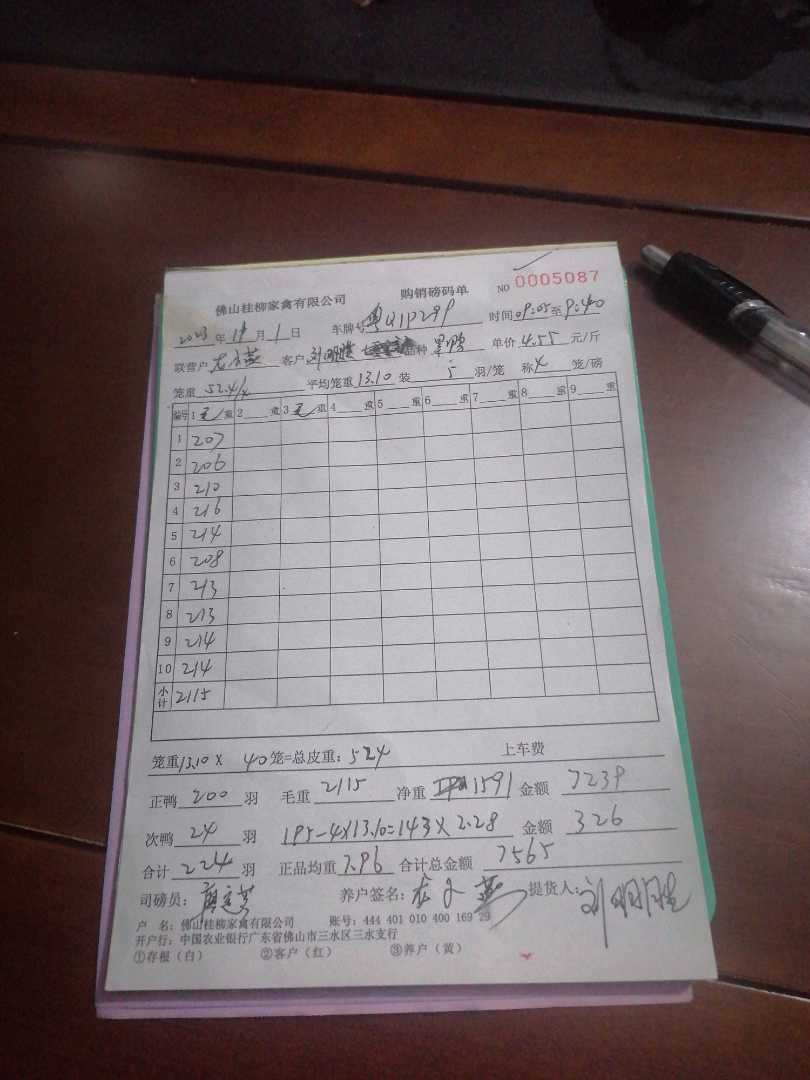 佛山桂柳家禽有限公司 购销磅码单 NO 0005087
2023年 月1日 车牌号粤Q1P299 时间09:05至9:40
联营户 客户刘明胜 品种 单价4.55元/斤
笼重52.4/4 平均笼重13.10 装5羽/笼 称4笼/磅
编号 1毛重 2 重 3毛重 4 重 5 重 6 重 7 重 8 重 9 重
1 207
2 206
3 210
4 216
5 214
6 208
7 213
8 213
9 214
10 214
小计 2115
笼重13.10X 40笼=总皮重:524 上车费
正鸭200羽 毛重2115 净重1591 金额7239
次鸭24羽 195-4X13.10=143X2.28 金额326
合计224羽 正品均重7.96 合计总金额7565
司磅员: 养户签名: 提货人:刘明胜
户 名:佛山桂柳家禽有限公司 账号:444 401 010 400 169 29
开户行:中国农业银行广东省佛山市三水区三水支行
①存根(白) ②客户(红) ③养户(黄)